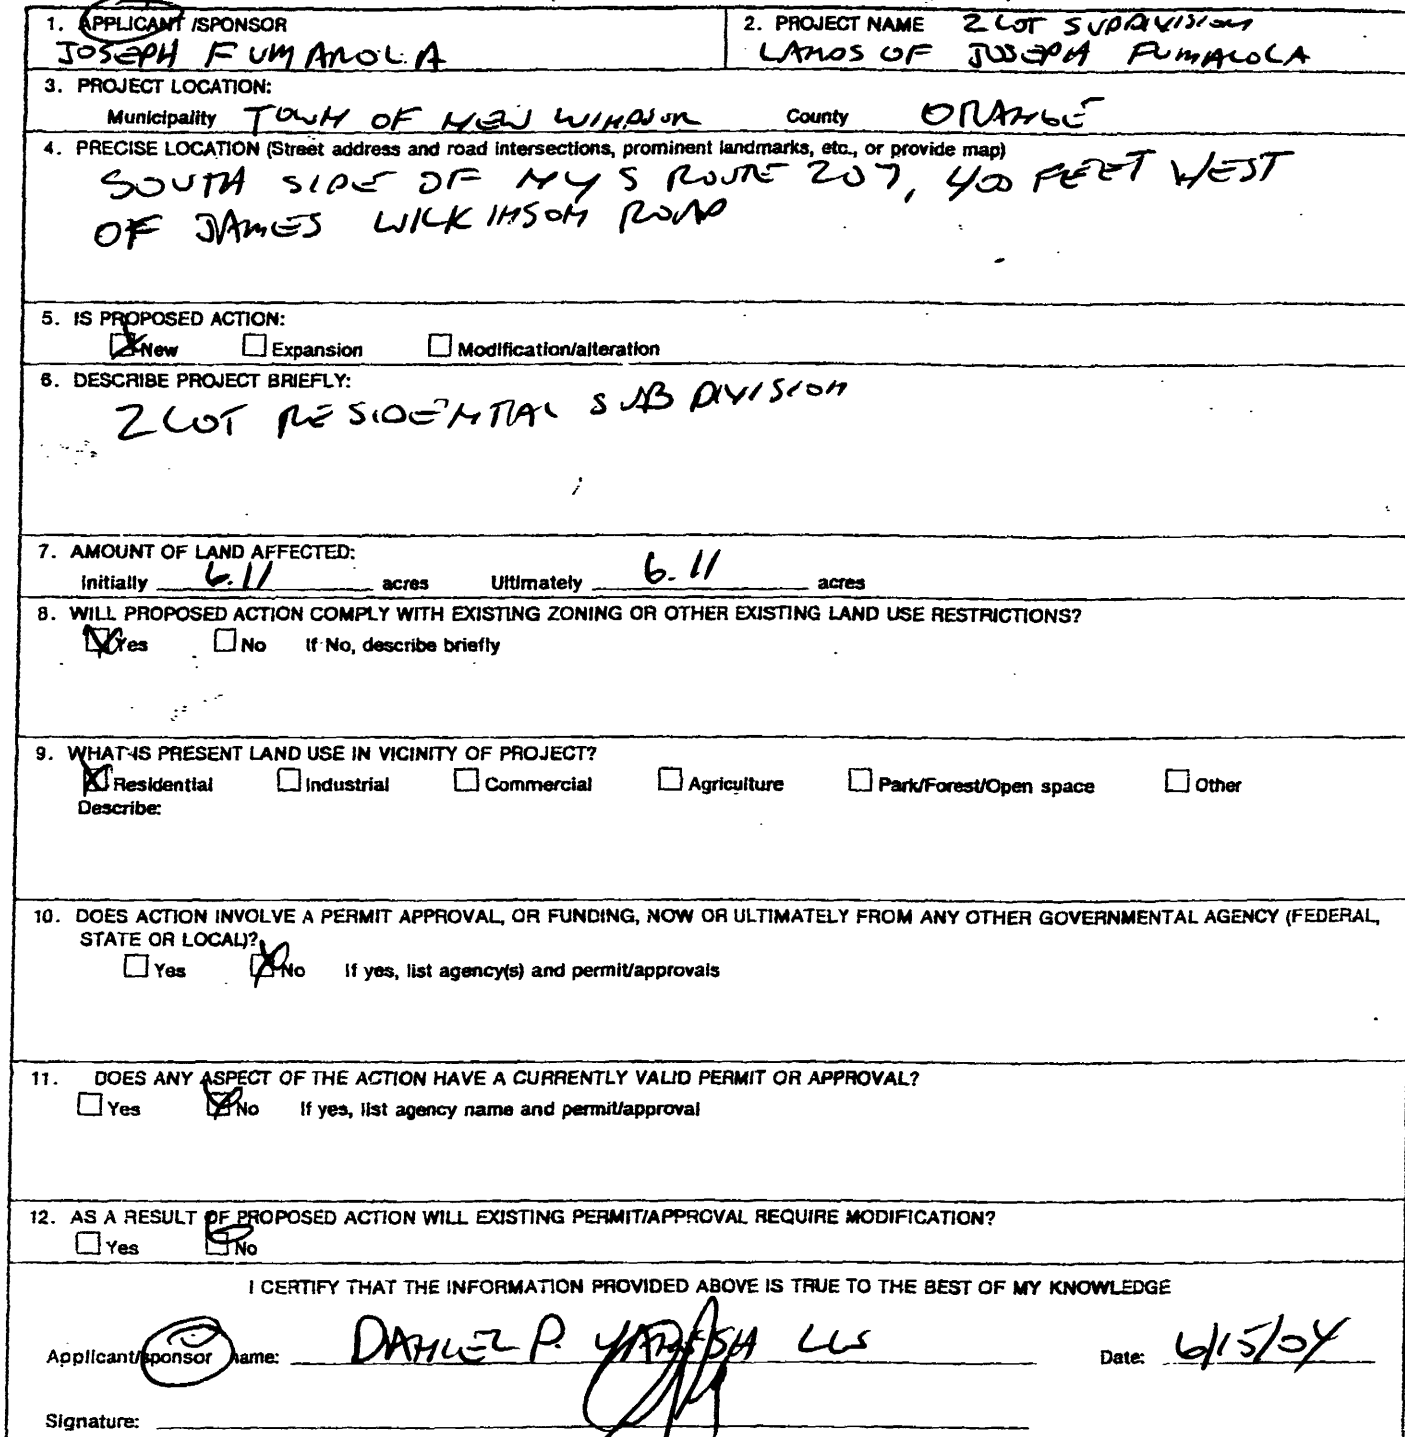 1. APPLICANT /SPONSOR
JOSEPH FUMAROLA
2. PROJECT NAME 2 LOT SUBDIVISION
LANDS OF JOSEPH FUMAROLA
3. PROJECT LOCATION:
Municipality TOWN OF NEW WINDSOR County ORANGE
4. PRECISE LOCATION (Street address and road intersections, prominent landmarks, etc., or provide map)
SOUTH SIDE OF NYS ROUTE 207, 400 FEET WEST
OF JAMES WILKINSON ROAD
5. IS PROPOSED ACTION:
New Expansion Modification/alteration
6. DESCRIBE PROJECT BRIEFLY:
2 LOT RESIDENTIAL SUBDIVISION
7. AMOUNT OF LAND AFFECTED:
Initially 6.11 acres Ultimately 6.11 acres
8. WILL PROPOSED ACTION COMPLY WITH EXISTING ZONING OR OTHER EXISTING LAND USE RESTRICTIONS?
Yes No If No, describe briefly
9. WHAT IS PRESENT LAND USE IN VICINITY OF PROJECT?
Residential Industrial Commercial Agriculture Park/Forest/Open space Other
Describe:
10. DOES ACTION INVOLVE A PERMIT APPROVAL, OR FUNDING, NOW OR ULTIMATELY FROM ANY OTHER GOVERNMENTAL AGENCY (FEDERAL,
STATE OR LOCAL)?
Yes No If yes, list agency(s) and permit/approvals
11. DOES ANY ASPECT OF THE ACTION HAVE A CURRENTLY VALID PERMIT OR APPROVAL?
Yes No If yes, list agency name and permit/approval
12. AS A RESULT OF PROPOSED ACTION WILL EXISTING PERMIT/APPROVAL REQUIRE MODIFICATION?
Yes No
I CERTIFY THAT THE INFORMATION PROVIDED ABOVE IS TRUE TO THE BEST OF MY KNOWLEDGE
Applicant/sponsor name: DANIEL P. YANOSH LLS Date: 6/15/04
Signature: